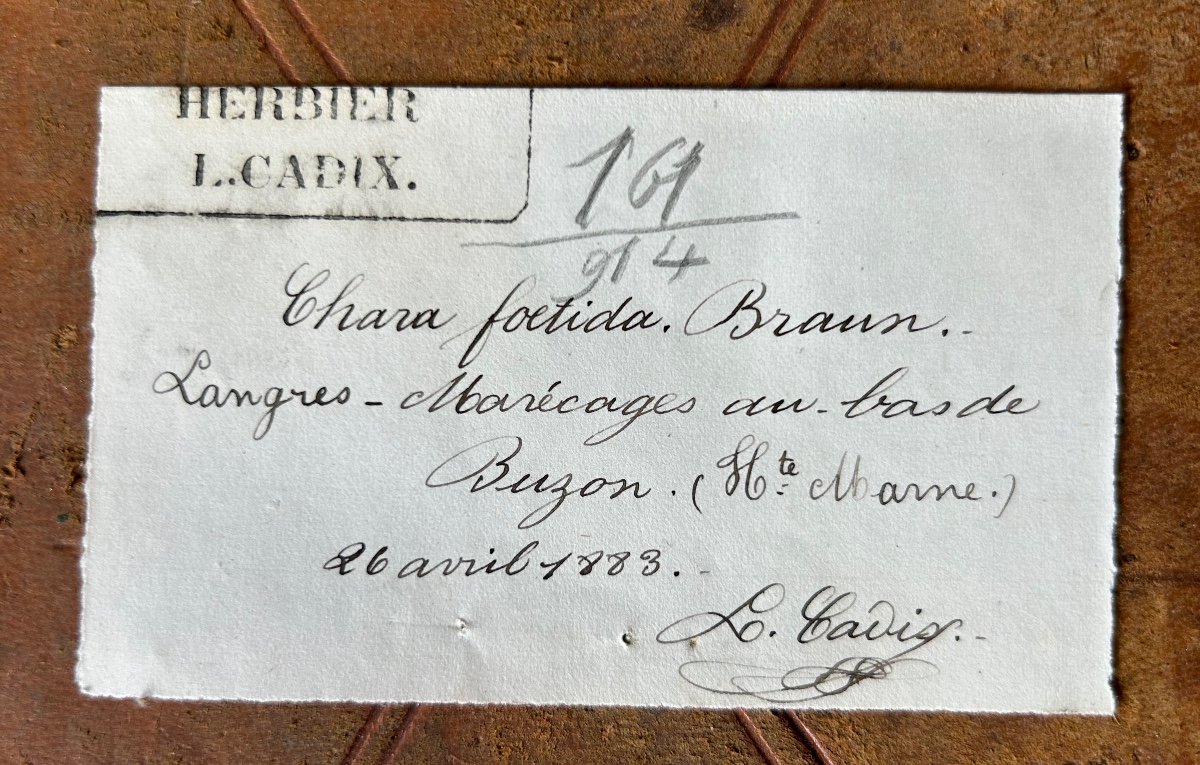 HERBIER
L. CADIX.
161
914
Chara foetida. Braun.-
Langres - Marécages au-bas de
Buzon. (Hte Marne.)
26 avril 1883.-
L. Cadix.-